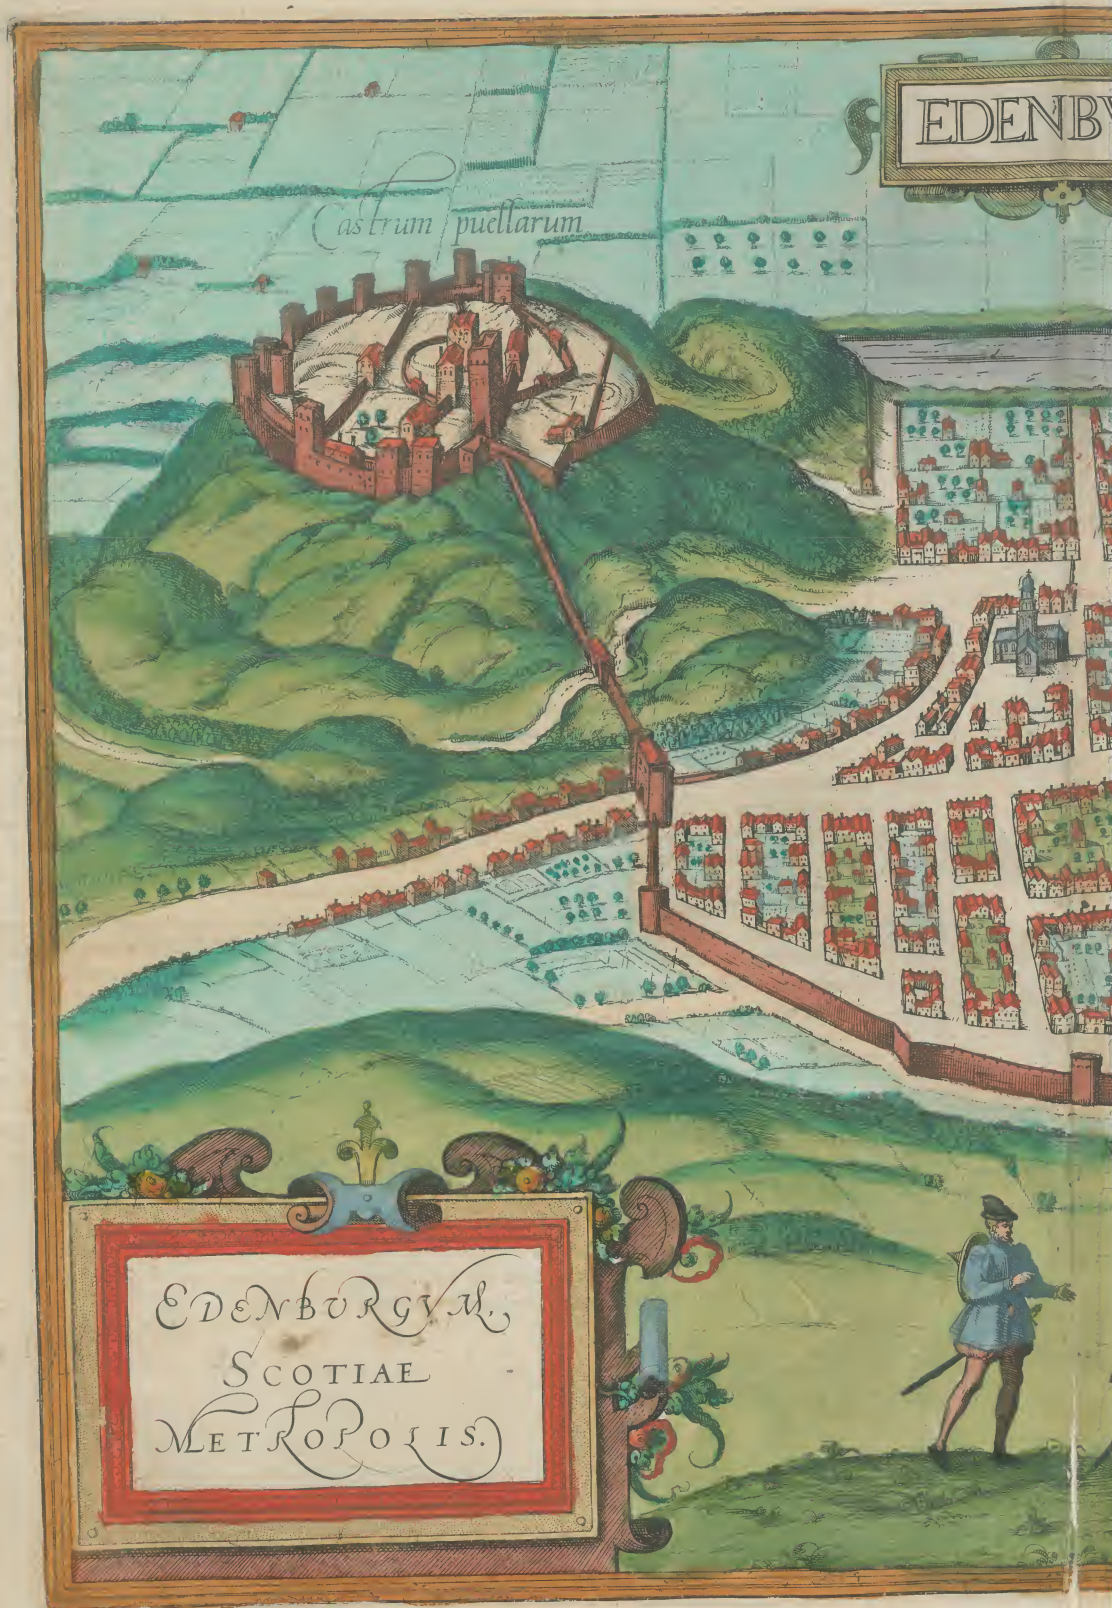 EDENBV
Castrum puellarum
EDENBVRGVM,
SCOTIAE
METROPOLIS.